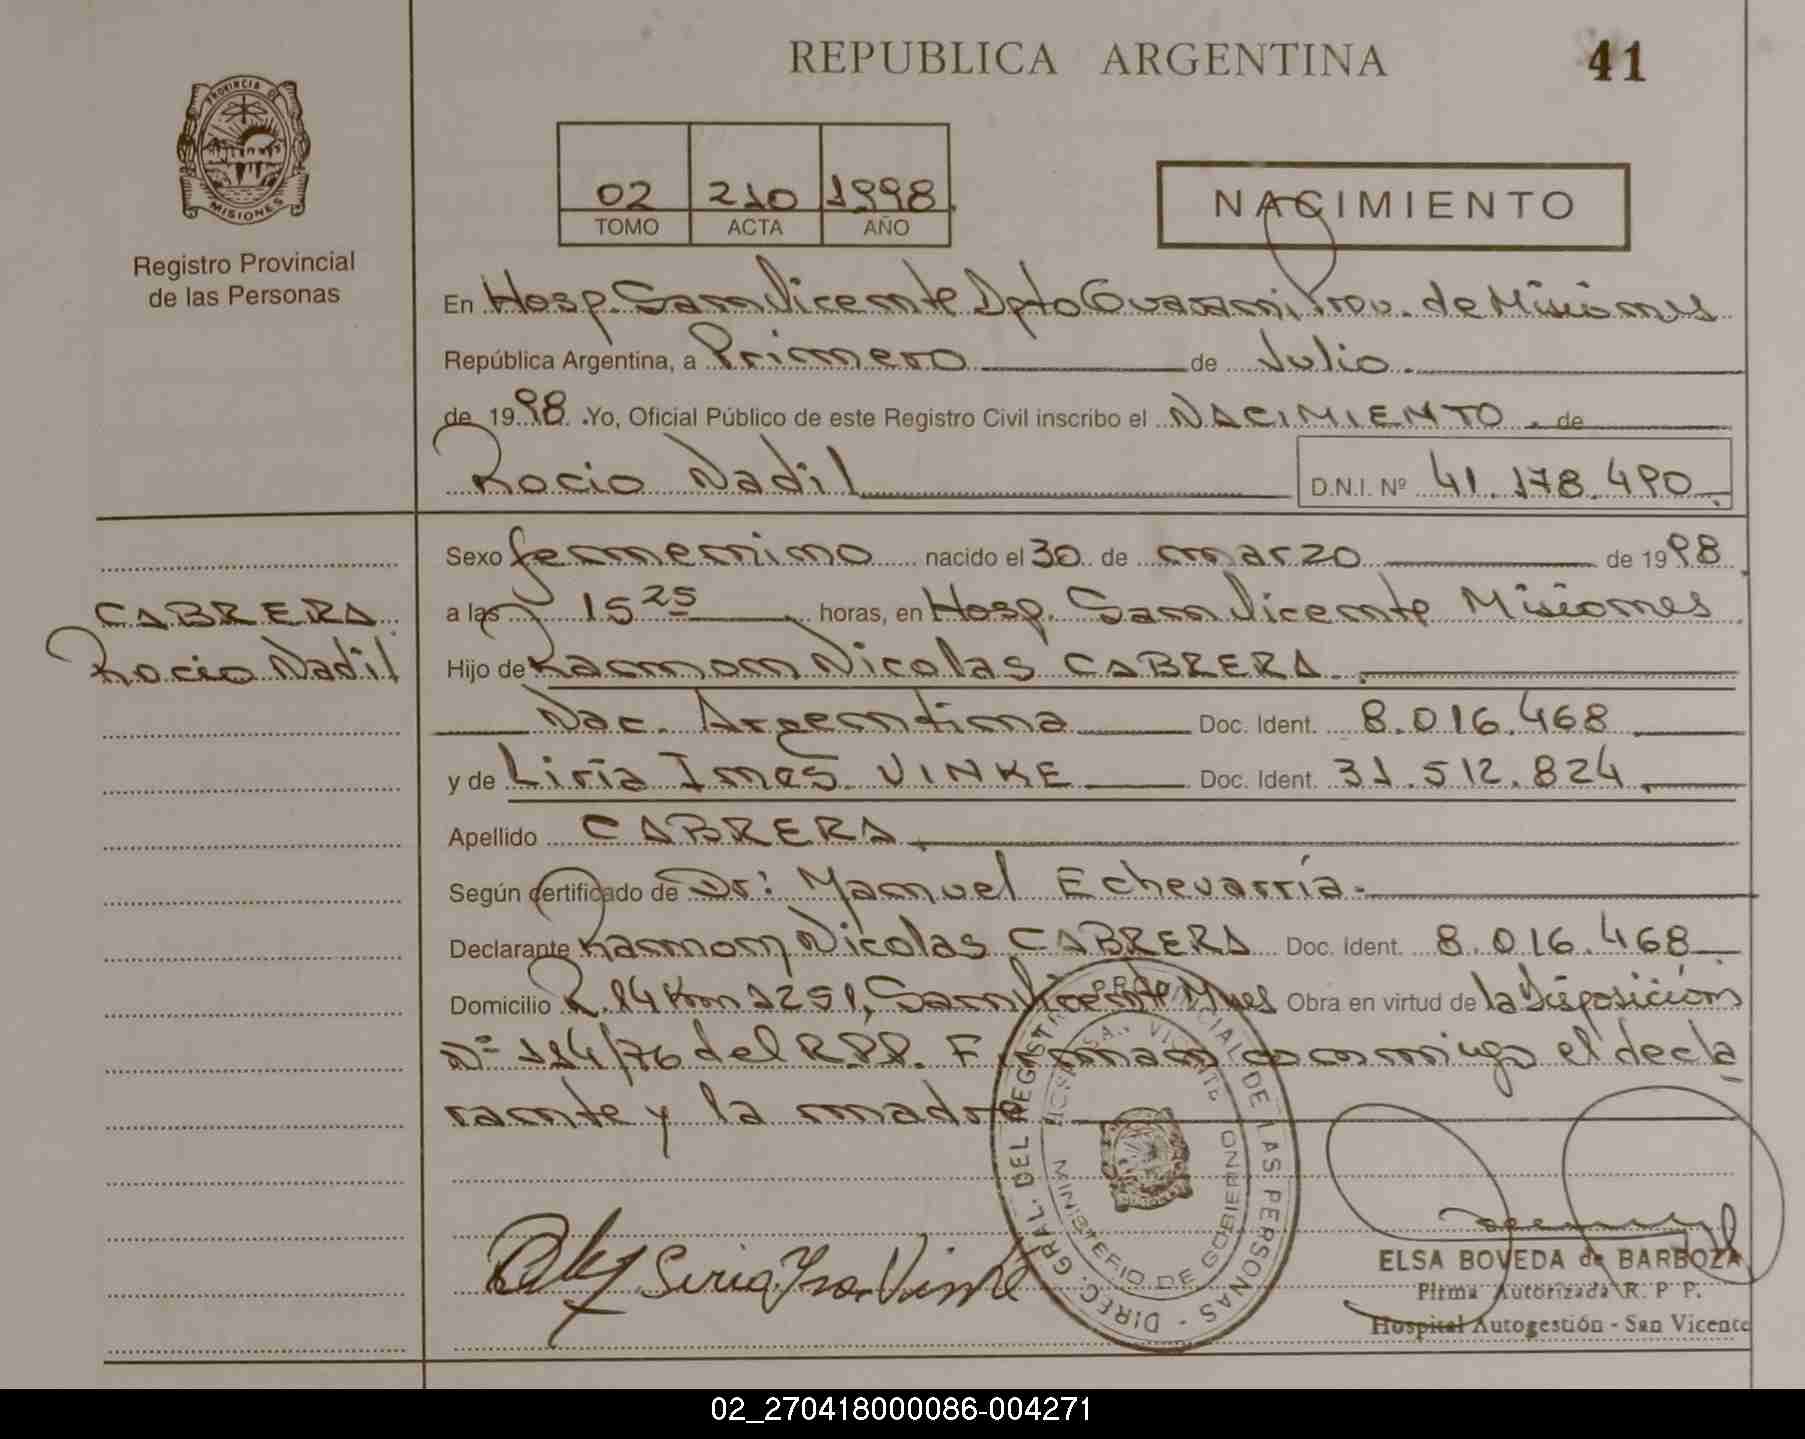 REPUBLICA ARGENTINA
41
PROVINCIA DE
MISIONES
Registro Provincial
de las Personas
02 210 1998
TOMO ACTA AÑO
NACIMIENTO
En Hosp. San Vicente Dpto Guaraní Prov. de Misiones
República Argentina, a Primero de Julio
de 1998. Yo, Oficial Público de este Registro Civil inscribo el NACIMIENTO. de
Rocio Nadil D.N.I. Nº 41.178.490.
Sexo femenino nacido el 30 de marzo de 1998.
a las 15 25 horas, en Hosp. San Vicente Misiones
Hijo de Ramon Nicolas CABRERA.
Nac. Argentina Doc. Ident. 8.016.468
y de Liria Ines VINKE Doc. Ident. 31.512.824
Apellido CABRERA
Según certificado de Dr: Manuel Echevarría.
Declarante Ramon Nicolas CABRERA Doc. Ident. 8.016.468
Domicilio R.14 Km 1251, San Vicente Mnes Obra en virtud de la Disposición
Nº 114/76 del R.P.P. Firman conmigo el decla
rante y la madre
CABRERA
Rocio Nadil
DIREC. GRAL. DEL REGISTRO PROVINCIAL DE LAS PERSONAS -
MINISTERIO DE GOBIERNO
ELSA BOVEDA de BARBOZA
Firma Autorizada R. P P.
Hospital Autogestión - San Vicente
02_270418000086-004271